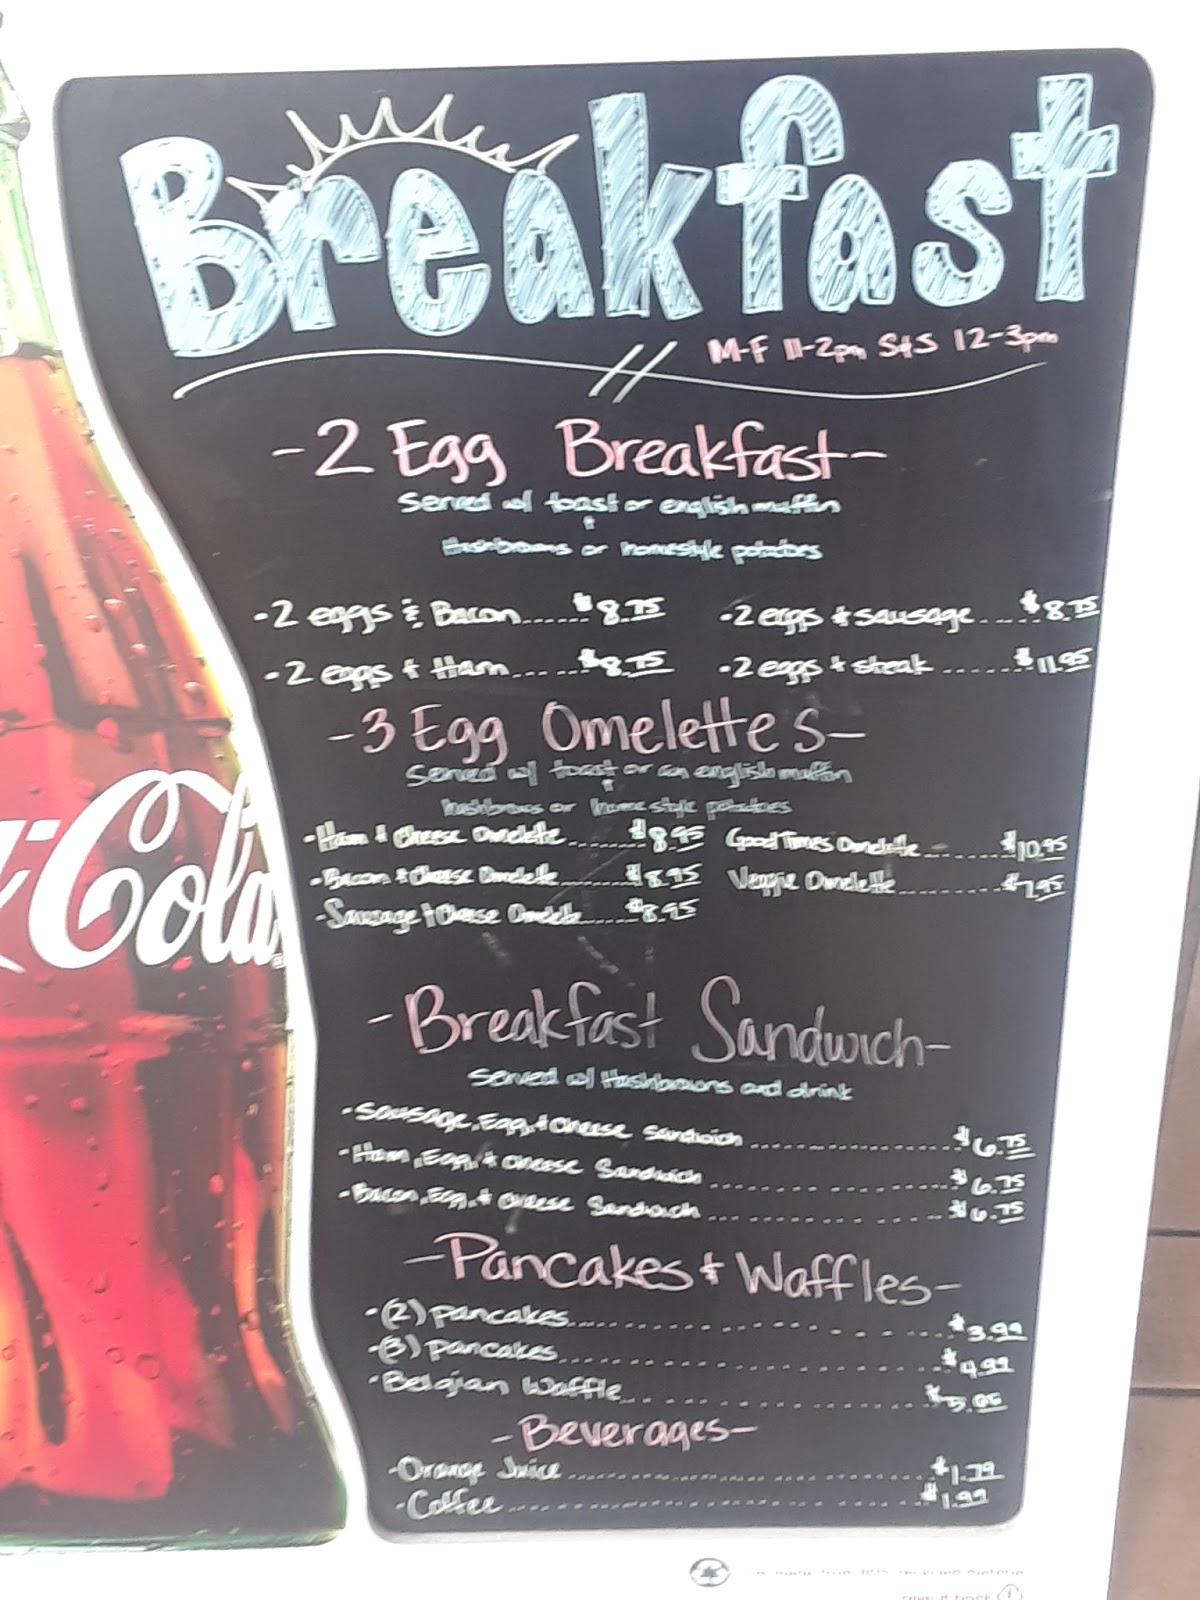 Breakfast
M-F 11-2pm S&S 12-3pm
-2 Egg Breakfast-
Served w/ toast or english muffin
+
Hashbrowns or homestyle potatoes
-2 eggs & Bacon......$8.75
-2 eggs + sausage....$8.75
-2 eggs + Ham......$8.75
-2 eggs + steak......$11.95
-3 Egg Omelettes-
Served w/ toast or an english muffin
+
hashbrowns or homestyle potatoes
-Ham + Cheese Omelette.......$8.95
Good Times Omelette.......$10.95
-Bacon + Cheese Omelette.......$8.95
Veggie Omelette.......$7.95
-Sausage + Cheese Omelete.....$8.95
Cola
-Breakfast Sandwich-
Served w/ Hashbrowns and drink
-Sausage, Egg, + Cheese sandwich.......$6.75
-Ham, Egg, + cheese Sandwich.......$6.75
-Bacon, Egg, + cheese Sandwich.......$6.75
-Pancakes + Waffles-
-(2) pancakes.......$3.99
-(3) pancakes.......$4.99
-Belgian Waffle.......
-Beverages-
-Orange Juice.......$1.79
-Coffee.......$1.99